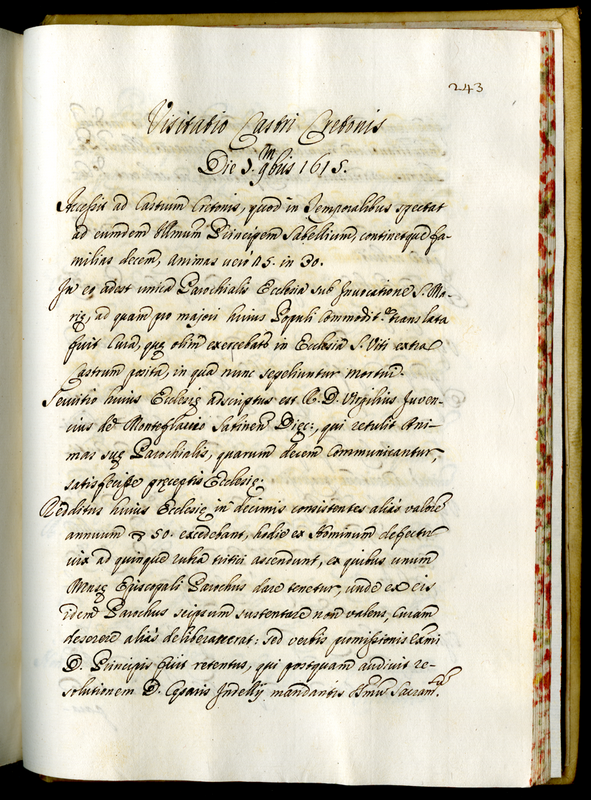 243
Visitatio Castri Cretonis
Die 5. 9bris 1615.
Accessit ad Castrum Cretonis, quod in Temporalibus spectat
ad eumdem Illmum Principem Sabellium, continetque fa-
milias decem, animas vero 45. in 50.
In eo adest unica Parochialis Ecclesia sub Invocatione S. Ma-
rię, ad quam pro majori huius Populi Commodit.e translata
fuit Cura, quę olim exercebat in Ecclesia S. Viti extra
Castrum posita, in qua nunc sepeliuntur mortui.
Servitio huius Ecclesię adscriptus est R. D. Virgilius Juven-
cius de Monteflavio Sabinen Dięc:, qui retulit Ani-
mas suę Parochialis, quarum decem Communicantur,
satisfecisse pręceptis Ecclesię.
Redditus huius Ecclesię in decimis consistentes alias valore
annuum 50. excedebant, hodie ex Hominum defectu
vix ad quinque rubra tritici ascendunt, ex quibus unum
Mensę Episcopali Parochus dare tenetur, unde ex eis
idem Parochus seipsum sustentare non valens, Curam
deserere alias deliberaverat: sed verbis promissionis
D. Principis fuit retentus, qui postquam audivit re-
solutionem D. Cęsaris Indelij mandantis Sacram.